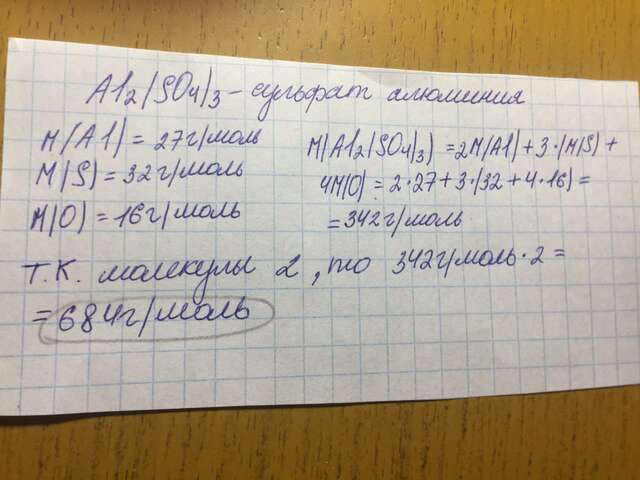 Al2(SO4)3 – сульфат алюминия
M(Al) = 27г/моль
M(S) = 32г/моль
M(O) = 16г/моль
M(Al2(SO4)3) = 2M(Al) + 3·(M(S) +
4M(O) = 2·27 + 3·(32 + 4·16) =
= 342г/моль
Т.К. молекулы 2, то 342г/моль·2 =
= 684г/моль